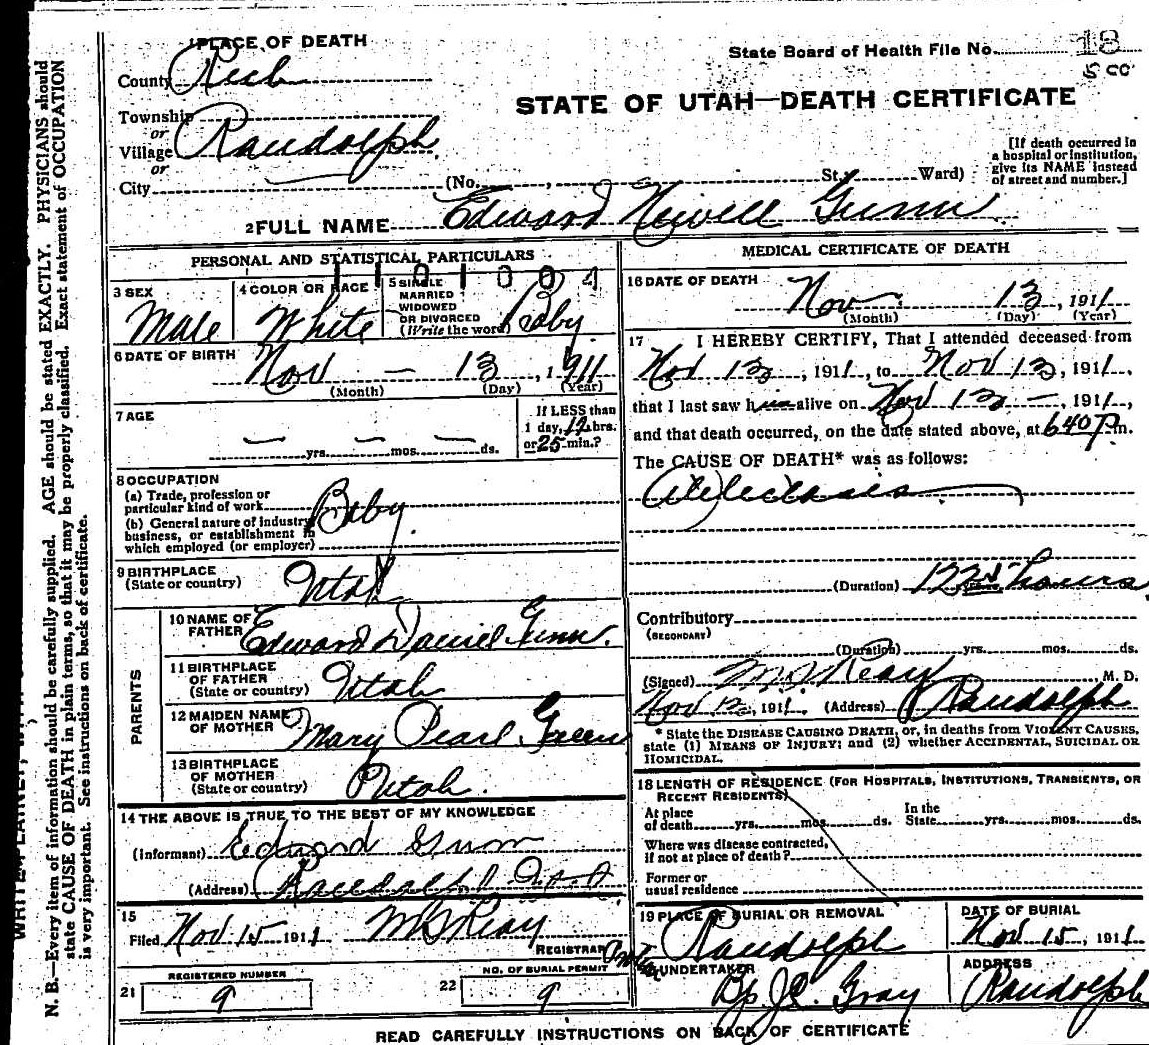 PLACE OF DEATH
County Rich
State Board of Health File No. 18
STATE OF UTAH—DEATH CERTIFICATE
Township
or
Village Randolph
or
City (No. , St. Ward)
[If death occurred in
a hospital or institution,
give its NAME instead
of street and number.]
2 FULL NAME Edward Newell Gunn
PERSONAL AND STATISTICAL PARTICULARS
3 SEX
Male
4 COLOR OR RACE
White
5 SINGLE
MARRIED
WIDOWED
OR DIVORCED
(Write the word) Baby
6 DATE OF BIRTH
Nov — 13, 1911
(Month) (Day) (Year)
7 AGE
— yrs. — mos. — ds.
If LESS than
1 day, 12 hrs.
or 25 min.?
8 OCCUPATION
(a) Trade, profession or
particular kind of work Baby
(b) General nature of industry
business, or establishment in
which employed (or employer)
9 BIRTHPLACE
(State or country) Utah
PARENTS
10 NAME OF
FATHER Edward Daniel Gunn.
11 BIRTHPLACE
OF FATHER
(State or country) Utah
12 MAIDEN NAME
OF MOTHER Mary Pearl Green
13 BIRTHPLACE
OF MOTHER
(State or country) Utah.
14 THE ABOVE IS TRUE TO THE BEST OF MY KNOWLEDGE
(Informant) Edward Gunn
(Address) Randolph Utah
15
Filed Nov 15 1911 M S Reay
REGISTRAR
REGISTERED NUMBER
21 9
NO. OF BURIAL PERMIT
22 9
MEDICAL CERTIFICATE OF DEATH
16 DATE OF DEATH
Nov. 13, 1911
(Month) (Day) (Year)
17 I HEREBY CERTIFY, That I attended deceased from
Nov 13, 1911, to Nov 13, 1911,
that I last saw him alive on Nov 13 — 1911,
and that death occurred, on the date stated above, at 640 P m.
The CAUSE OF DEATH* was as follows:
Atelectasis
(Duration) hours
Contributory
(SECONDARY)
(Duration) yrs. mos. ds.
(Signed) M S Reay M. D.
Nov 13, 1911 (Address) Randolph
* State the DISEASE CAUSING DEATH, or, in deaths from VIOLENT CAUSES,
state (1) MEANS OF INJURY; and (2) whether ACCIDENTAL, SUICIDAL OR
HOMICIDAL.
18 LENGTH OF RESIDENCE (FOR HOSPITALS, INSTITUTIONS, TRANSIENTS, OR
RECENT RESIDENTS)
At place
of death yrs. mos. ds.
In the
State yrs. mos. ds.
Where was disease contracted,
if not at place of death?
Former or
usual residence
19 PLACE OF BURIAL OR REMOVAL
Randolph
DATE OF BURIAL
Nov 15, 1911
UNDERTAKER
Bp J C. Gray
ADDRESS
Randolph
READ CAREFULLY INSTRUCTIONS ON BACK OF CERTIFICATE
N. B.—Every item of information should be carefully supplied. AGE should be stated EXACTLY. PHYSICIANS should
state CAUSE OF DEATH in plain terms, so that it may be properly classified. Exact statement of OCCUPATION
is very important. See instructions on back of certificate.